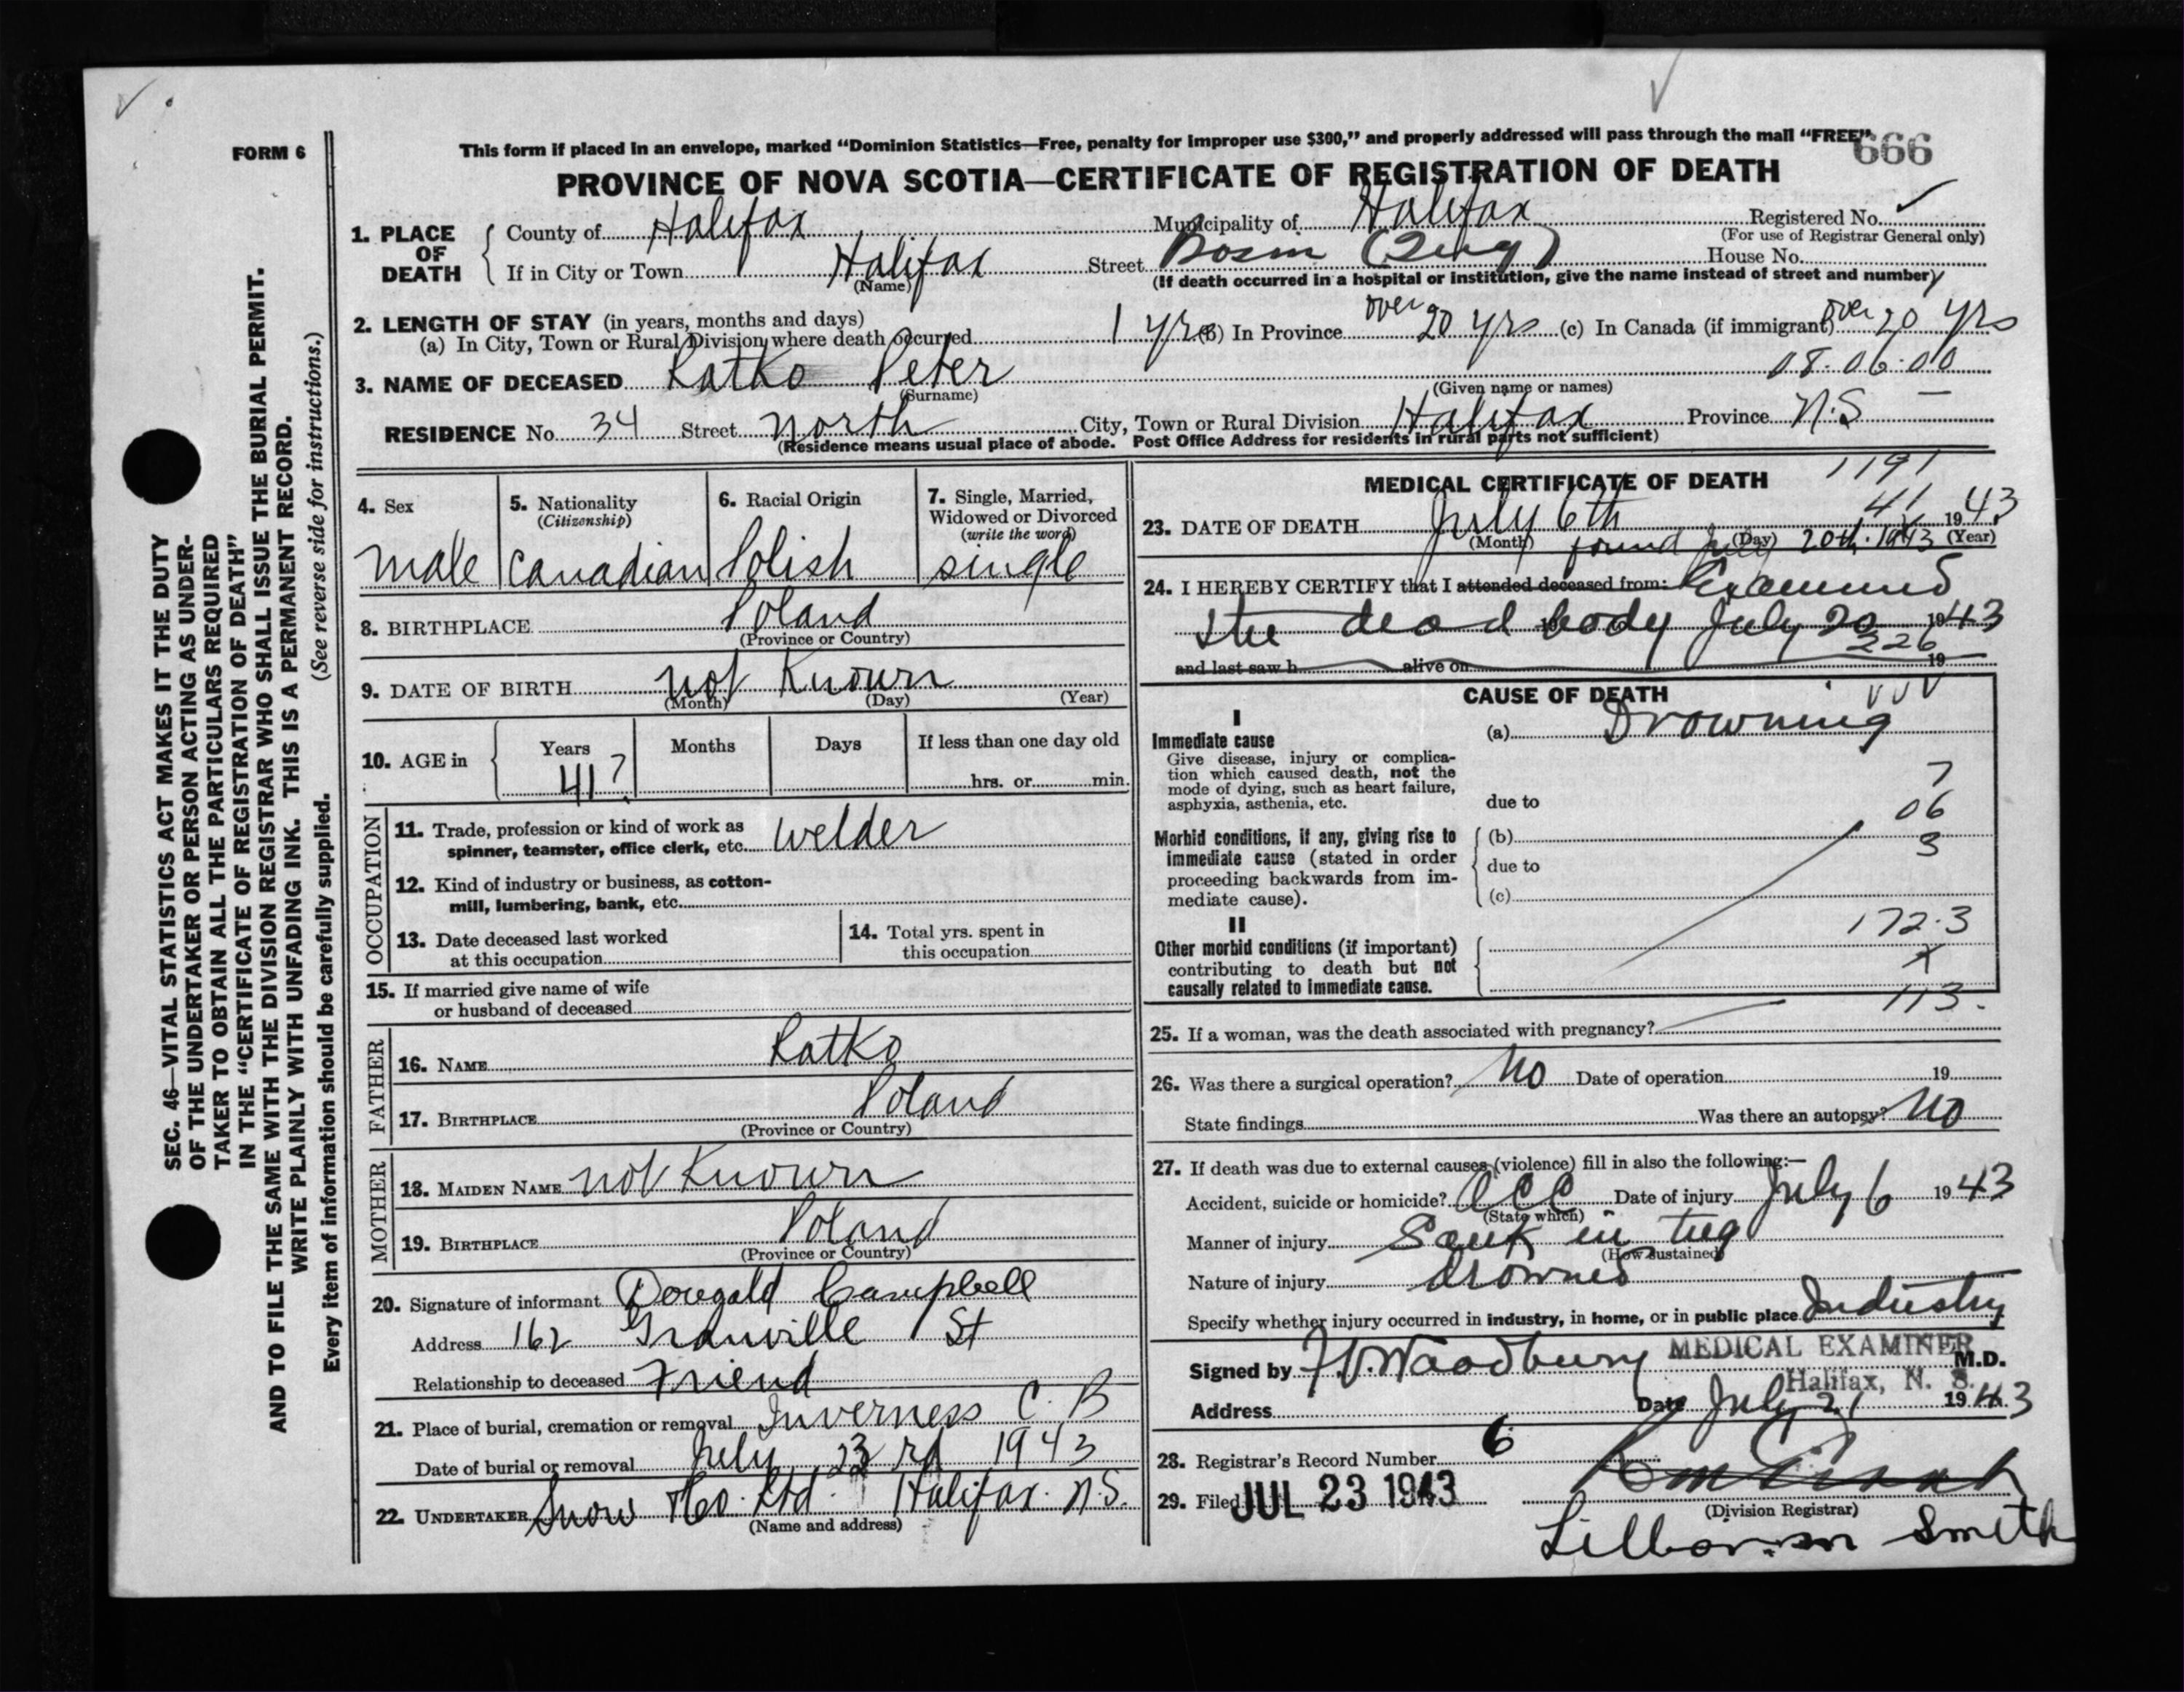 FORM 6
This form if placed in an envelope, marked "Dominion Statistics—Free, penalty for improper use $300," and properly addressed will pass through the mail "FREE".
666
PROVINCE OF NOVA SCOTIA—CERTIFICATE OF REGISTRATION OF DEATH
1. PLACE OF DEATH
County of Halifax Municipality of Halifax Registered No.
(For use of Registrar General only)
If in City or Town Halifax Street House No.
(Name) (If death occurred in a hospital or institution, give the name instead of street and number)
2. LENGTH OF STAY (in years, months and days)
(a) In City, Town or Rural Division where death occurred 1 yr (B) In Province over 20 yrs (c) In Canada (if immigrant) over 20 yrs
08.06.00
3. NAME OF DECEASED Ratko Peter
(Surname) (Given name or names)
RESIDENCE No. 34 Street North City, Town or Rural Division Halifax Province N.S
(Residence means usual place of abode. Post Office Address for residents in rural parts not sufficient)
4. Sex
male
5. Nationality
(Citizenship)
Canadian
6. Racial Origin
Polish
7. Single, Married, Widowed or Divorced
(write the word)
single
8. BIRTHPLACE Poland
(Province or Country)
9. DATE OF BIRTH not Known
(Month) (Day) (Year)
10. AGE in Years Months Days If less than one day old
41? hrs. or min.
OCCUPATION
11. Trade, profession or kind of work as
spinner, teamster, office clerk, etc. welder
12. Kind of industry or business, as cotton-
mill, lumbering, bank, etc.
13. Date deceased last worked
at this occupation
14. Total yrs. spent in
this occupation
15. If married give name of wife
or husband of deceased
FATHER
16. NAME Ratko
17. BIRTHPLACE Poland
(Province or Country)
MOTHER
18. MAIDEN NAME not Known
19. BIRTHPLACE Poland
(Province or Country)
20. Signature of informant Dougald Campbell
Address 162 Granville St
Relationship to deceased Friend
21. Place of burial, cremation or removal Inverness C.B
Date of burial or removal July 23rd 1943
22. UNDERTAKER Snow & Co. Ltd. Halifax. N.S.
(Name and address)
MEDICAL CERTIFICATE OF DEATH
1191
41
23. DATE OF DEATH July 6th 1943
(Month) (Day) (Year)
found July 20th. 1943
24. I HEREBY CERTIFY that I attended deceased from: Examined
the dead body July 20 1943
226
and last saw h alive on 19
CAUSE OF DEATH
I
Immediate cause
Give disease, injury or complica-
tion which caused death, not the
mode of dying, such as heart failure,
asphyxia, asthenia, etc.
(a) Drowning
due to
7
06
3
Morbid conditions, if any, giving rise to
immediate cause (stated in order
proceeding backwards from im-
mediate cause).
(b)
due to
(c)
II
Other morbid conditions (if important)
contributing to death but not
causally related to immediate cause.
172.3
X
113.
25. If a woman, was the death associated with pregnancy?
26. Was there a surgical operation? No Date of operation 19
State findings Was there an autopsy? No
27. If death was due to external causes (violence) fill in also the following:—
Accident, suicide or homicide? Acc Date of injury July 6 1943
(State which)
Manner of injury Sank in tug
(How sustained)
Nature of injury drowned
Specify whether injury occurred in industry, in home, or in public place Industry
Signed by Woodbury MEDICAL EXAMINER M.D.
Halifax, N. S.
Address Date July 21 1943
28. Registrar's Record Number 6
29. Filed JUL 23 1943
(Division Registrar)
Smith
SEC. 46—VITAL STATISTICS ACT MAKES IT THE DUTY
OF THE UNDERTAKER OR PERSON ACTING AS UNDER-
TAKER TO OBTAIN ALL THE PARTICULARS REQUIRED
IN THE "CERTIFICATE OF REGISTRATION OF DEATH"
AND TO FILE THE SAME WITH THE DIVISION REGISTRAR WHO SHALL ISSUE THE BURIAL PERMIT.
WRITE PLAINLY WITH UNFADING INK. THIS IS A PERMANENT RECORD.
Every item of information should be carefully supplied. (See reverse side for instructions.)